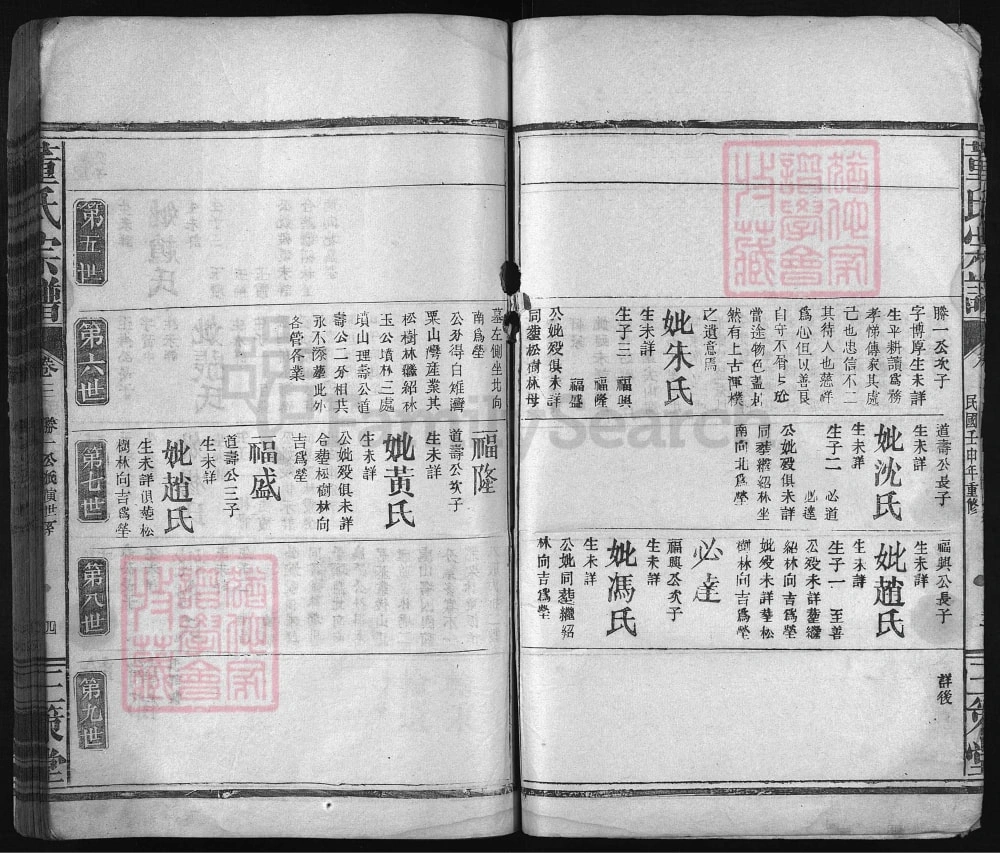 董氏宗譜
民國壬申年重修
三策堂
勝一公次子
字博厚生未詳
生平耕讀爲務
孝悌傳家其處
己也忠信不二
其待人也慈祥
爲心但以善良
自守不屑占訟
當途物色盍利
然有上古渾樸
之遺意焉
妣朱氏
生未詳
生子三 福興
福隆
福盛
公妣殁俱未詳
同塟松樹林母
道壽公長子
生未詳
妣沈氏
生未詳
生子二 必道
必達
公妣殁俱未詳
同塟繼紹林坐
南向北爲塋
福興公長子
生未詳
妣趙氏
生未詳
生子一 至善
公殁未詳塟繼
紹林向吉爲塋
妣殁未詳塟松
樹林向吉爲塋
必達
福興公次子
生未詳
妣馮氏
生未詳
公妣同塟繼紹
林向吉爲塋
詳後
墓左側坐北向
南爲塋
公分得白雉灣
栗山灣産業其
松樹林繼紹林
玉公墳林三處
墳山理壽公道
壽公二分相共
永不深塟此外
各管各業
福隆
道壽公次子
生未詳
妣黃氏
生未詳
公妣殁俱未詳
合塟松樹林向
吉爲塋
福盛
道壽公三子
生未詳
妣趙氏
生未詳俱塟松
樹林向吉爲塋
第五世
第六世
第七世
第八世
第九世
董氏宗譜
卷三
四
三策堂
FamilySearch